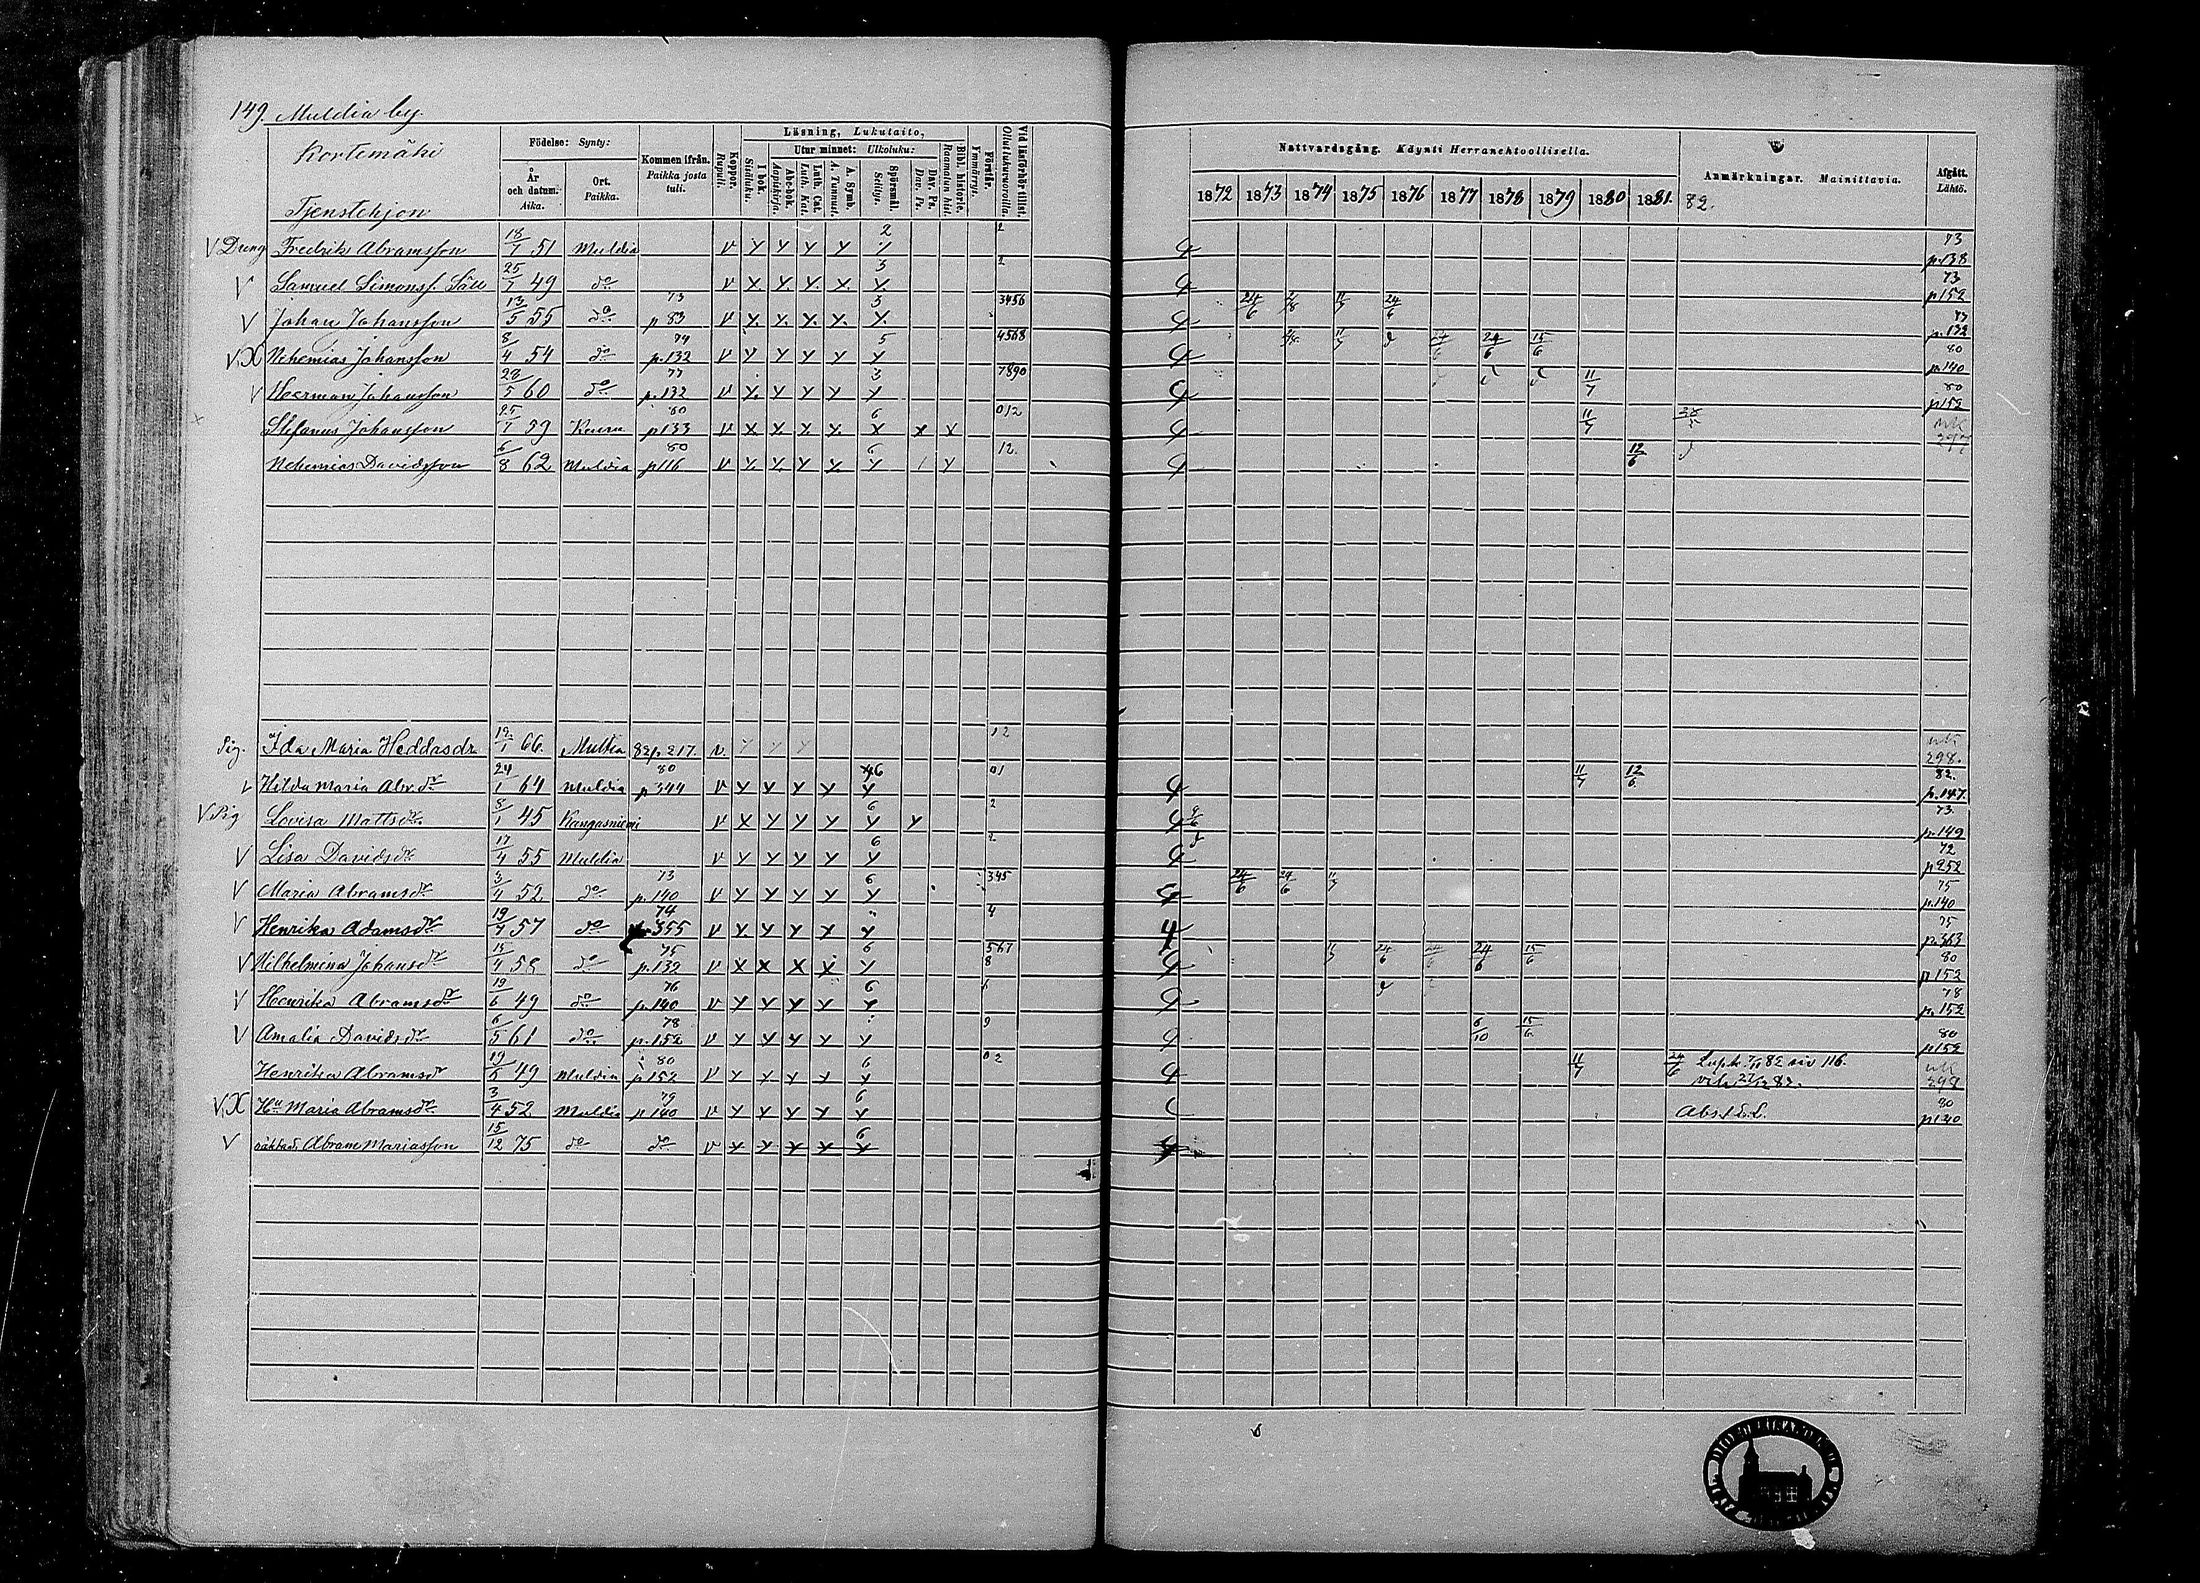 149. Muldia by.
Kortemäki
Tjenstehjon
Födelse: Synty:
År och datum. Aika.
Ort. Paikka.
Kommen ifrån. Paikka josta tuli.
Koppor. Rupuli.
Läsning, Lukutaito,
I bok. Sisäluku.
Utur minnet: Ulkoluku:
Abc-bok. Aapiskirja.
Luth. Cat. Luth. Kat.
A. Symb. A. Tunnust.
Spörsmål. Selitys.
Dav. Ps. Dav. Ps.
Bibl. historie. Raamatun hist.
Förstår. Ymmärrys.
Vid läsförhör tillst. Ollut lukuvuoroilla.
Nattvardsgång. Käynti Herranehtoollisella.
1872 1873 1874 1875 1876 1877 1878 1879 1880 1881. 82.
Anmärkningar. Mainittavia.
Afgått. Lähtö.
V Dreng Fredrik Abramsson 18/7 51 Muldia v 2 2 4 73 p.138
V Samuel Simonss. Säll 25/7 49 do v 3 2 4 73 p152
V Johan Johansson 13/5 55 do 73 p 83 v 3 3456 4 24/6 11/7 24/6 p.132
V.X Nehemias Johansson 8/4 54 do 74 p.132 v 5 4568 4 11/7 24/6 24/6 15/6 80 p.140
V Herman Johansson 28/5 60 do 77 p.132 v 3 7890 4 11/7 80 p152
Stefanus Johansson 25/1 59 Keuru 80 p133 v 6 012 4 11/7
Nehemias Davidsson 6/8 62 Muldia 80 p116 v 6 12. 4 12/6
Pig. Ida Maria Heddasdr 12/1 66 Multia 82 p. 217. v. 12 298.
v Hilda Maria Abr.dr 24/1 64 Muldia 80 p 344 v 6 01 4 11/7 12/6 82. p.147.
V Pig Lovisa Mattsdr 8/1 45 Kangasniemi v 6 2 4 73. p.149
V Lisa Davidsdr 17/4 55 Muldia v 6 2 4 72 p252
V Maria Abramsdr 3/4 52 do 73 p.140 v 6 345 4 24/6 24/6 11/7 75 p.140
V Henrika Adamsdr 19/7 57 do 74 p.355 v 4 4 75 p.363
V Wilhelmina Johansdr 15/4 58 do 75 p.132 v 6 5678 4 11/7 24/6 24/6 24/6 15/6 80 p152
V Henrika Abramsdr 19/6 49 do 76 p.140 v 6 6 4 78 p.152
V Amalia Davidsdr 6/5 61 do 78 p.152 v 9 4 6/10 15/6 80 p152
Henrika Abramsdr 19/6 49 Muldia 80 p152 v 6 02 4 11/7 24/6 82 siv 116. 298
V.X Hu Maria Abramsdr 3/4 52 Muldia 79 p 140 v 6 80 p140
V oäkta s. Abram Mariasson 15/12 75 do do v 6 4